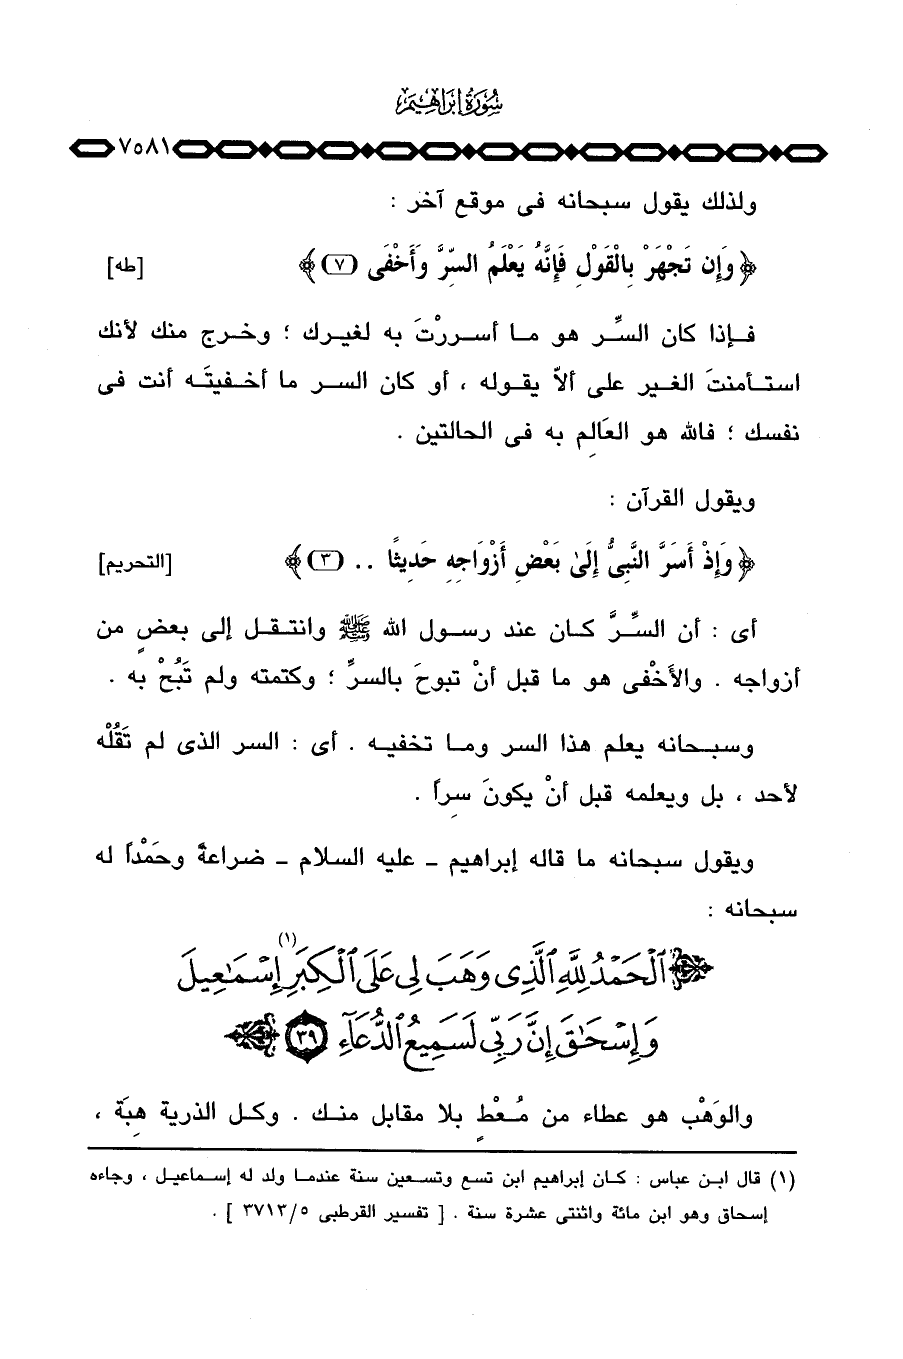 سُورَةُ إِبْرَاهِيم
٧٥٨١
ولذلك يقول سبحانه فى موقع آخر :
﴿ وَإِن تَجْهَرْ بِالْقَوْلِ فَإِنَّهُ يَعْلَمُ السِّرَّ وَأَخْفَى (٧) ﴾ [طه]
فإذا كان السِّر هو ما أسررْتَ به لغيرك ؛ وخرج منك لأنك
استأمنتَ الغير على ألاّ يقوله ، أو كان السر ما أخفيتَه أنت فى
نفسك ؛ فالله هو العَالِم به فى الحالتين .
ويقول القرآن :
﴿ وَإِذْ أَسَرَّ النَّبِىُّ إِلَىٰ بَعْضِ أَزْوَاجِهِ حَدِيثًا .. (٣) ﴾ [التحريم]
أى : أن السِّرَّ كان عند رسول الله ﷺ وانتقل إلى بعضٍ من
أزواجه . والأخْفى هو ما قبل أنْ تبوحَ بالسرِّ ؛ وكتمته ولم تَبُحْ به .
وسبحانه يعلم هذا السر وما تخفيه . أى : السر الذى لم تَقُلْه
لأحد ، بل ويعلمه قبل أنْ يكونَ سِراً .
ويقول سبحانه ما قاله إبراهيم - عليه السلام - ضراعةً وحَمْداً له
سبحانه :
ٱلْحَمْدُ لِلَّهِ ٱلَّذِى وَهَبَ لِى عَلَى ٱلْكِبَرِ إِسْمَٰعِيلَ (١)
وَإِسْحَٰقَ إِنَّ رَبِّى لَسَمِيعُ ٱلدُّعَآءِ ٣٩
والوَهْب هو عطاء من مُعْطٍ بلا مقابل منك . وكل الذرية هِبَة ،
(١) قال ابن عباس : كان إبراهيم ابن تسع وتسعين سنة عندما ولد له إسماعيل ، وجاءه
إسحاق وهو ابن مائة واثنتى عشرة سنة . [ تفسير القرطبى ٣٧١٣/٥ ] .